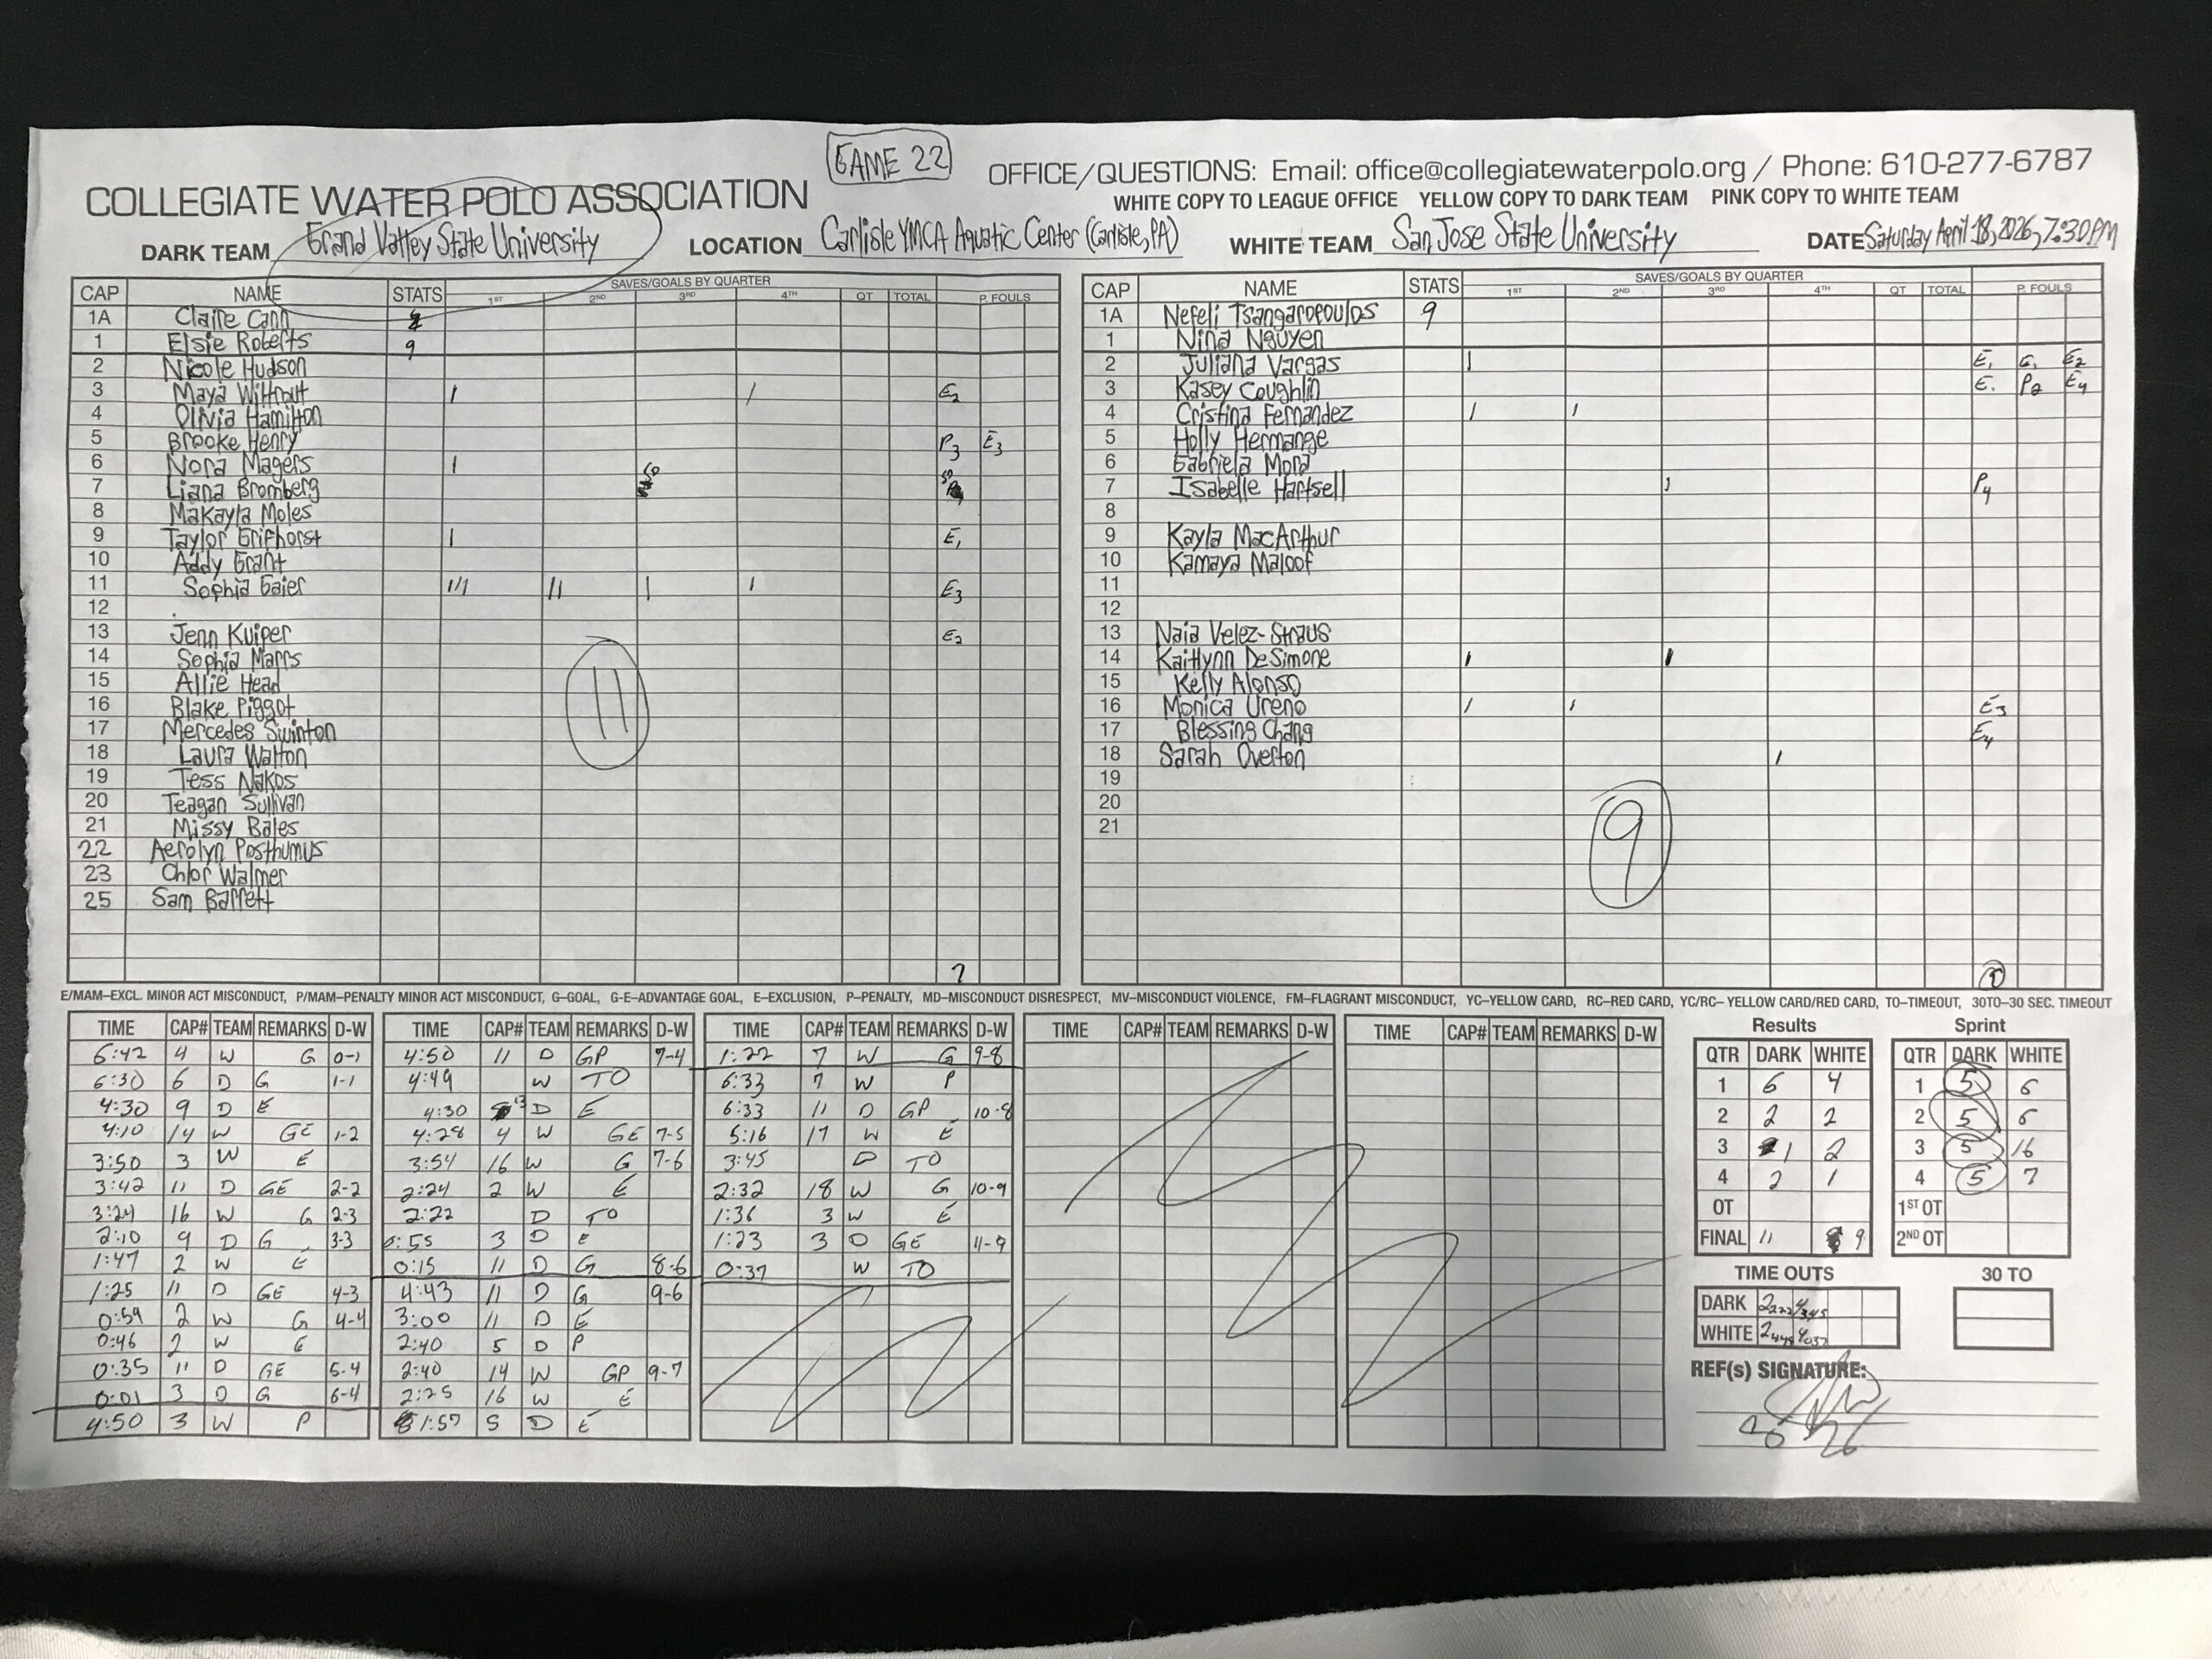 GAME 22
COLLEGIATE WATER POLO ASSOCIATION
OFFICE/QUESTIONS: Email: office@collegiatewaterpolo.org / Phone: 610-277-6787
WHITE COPY TO LEAGUE OFFICE YELLOW COPY TO DARK TEAM PINK COPY TO WHITE TEAM
DARK TEAM Grand Valley State University LOCATION Carlisle YMCA Aquatic Center (Carlisle, PA) WHITE TEAM San Jose State University DATE Saturday April 18, 2026, 7:30PM
CAP NAME STATS SAVES/GOALS BY QUARTER 1ST 2ND 3RD 4TH QT TOTAL P. FOULS
1A Claire Cann
1 Elsie Roberts 9
2 Nicole Hudson
3 Maya Withrout / / E2
4 Olivia Hamilton
5 Brooke Henry P3 E3
6 Nora Magers /
7 Liana Bromberg
8 Makayla Moles
9 Taylor Grifhorst / E1
10 Addy Grant
11 Sophia Gaier /// // / / E3
12
13 Jenn Kuiper E2
14 Sophia Marrs
15 Allie Head
16 Blake Piggot
17 Mercedes Swinton
18 Laura Walton
19 Tess Nakos
20 Teagan Sullivan
21 Missy Bales
22 Aerolyn Posthumus
23 Chlor Walmer
25 Sam Barrett
11
7
CAP NAME STATS SAVES/GOALS BY QUARTER 1ST 2ND 3RD 4TH QT TOTAL P. FOULS
1A Nefeli Tsangaropoulos 9
1 Nina Nguyen
2 Juliana Vargas / E1 G1 E2
3 Kasey Coughlin E1 P2 E4
4 Cristina Fernandez / /
5 Holly Hermange
6 Gabriela Mora
7 Isabelle Hartsell / P4
8
9 Kayla MacArthur
10 Kamaya Maloof
11
12
13 Naia Velez-Straus
14 Kaitlynn DeSimone / /
15 Kelly Alonso
16 Monica Ureno / / E3
17 Blessing Chang E4
18 Sarah Overton /
19
20
21
9
E/MAM–EXCL. MINOR ACT MISCONDUCT, P/MAM–PENALTY MINOR ACT MISCONDUCT, G–GOAL, G-E–ADVANTAGE GOAL, E–EXCLUSION, P–PENALTY, MD–MISCONDUCT DISRESPECT, MV–MISCONDUCT VIOLENCE, FM–FLAGRANT MISCONDUCT, YC–YELLOW CARD, RC–RED CARD, YC/RC– YELLOW CARD/RED CARD, TO–TIMEOUT, 30TO–30 SEC. TIMEOUT
TIME CAP# TEAM REMARKS D-W
6:42 4 W G 0-1
6:30 6 D G 1-1
4:30 9 D E
4:10 14 W GE 1-2
3:50 3 W E
3:42 11 D GE 2-2
3:24 16 W G 2-3
2:10 9 D G 3-3
1:47 2 W E
1:25 11 D GE 4-3
0:59 2 W G 4-4
0:46 2 W E
0:35 11 D GE 5-4
0:01 3 D G 6-4
4:50 3 W P
TIME CAP# TEAM REMARKS D-W
4:50 11 D GP 7-4
4:49 W TO
4:30 13 D E
4:28 4 W GE 7-5
3:54 16 W G 7-6
2:24 2 W E
2:22 D TO
0:55 3 D E
0:15 11 D G 8-6
4:43 11 D G 9-6
3:00 11 D E
2:40 5 D P
2:40 14 W GP 9-7
2:25 16 W E
1:57 5 D E
TIME CAP# TEAM REMARKS D-W
1:22 7 W G 9-8
6:33 7 W P
6:33 11 D GP 10-8
5:16 17 W E
3:45 D TO
2:32 18 W G 10-9
1:36 3 W E
1:23 3 D GE 11-9
0:37 W TO
TIME CAP# TEAM REMARKS D-W
TIME CAP# TEAM REMARKS D-W
Results
QTR DARK WHITE
1 6 4
2 2 2
3 1 2
4 2 1
OT
FINAL 11 9
Sprint
QTR DARK WHITE
1 5 6
2 5 6
3 5 16
4 5 7
1ST OT
2ND OT
TIME OUTS
DARK 2 222 4 345
WHITE 2 449 4 037
30 TO
REF(s) SIGNATURE: